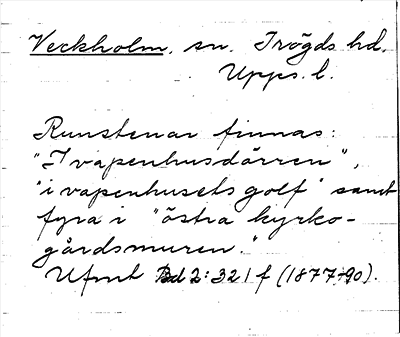 Veckholm, sn. Trögds hd.
Upps. l.
Runstenar finnas:
"I vapenhusdörren",
"i vapenhusets golf" samt
fyra i "östra kyrko-
gårdsmuren."
Ufmt Bd 2:321 f (1877-90).